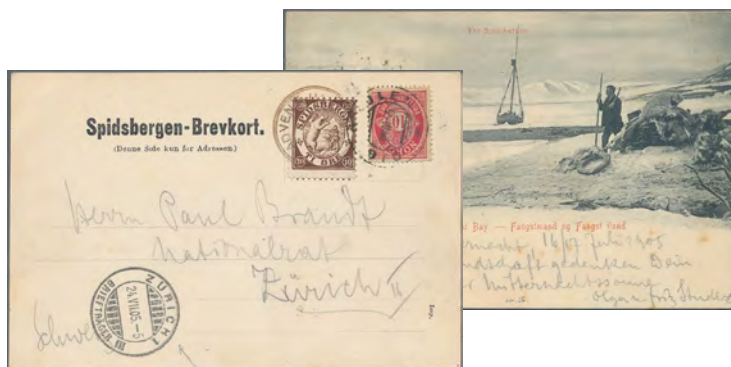 Spidsbergen-Brevkort.
(Denne side kun for Adressen.)
SPIDSBERGEN
ADVENT
10
Herrn Paul Brandt
Nationalrat
Zürich II
ZÜRICH 1
24.VII.05.-5
BRIEFTRÄGER III
Fra Spidsbergen
Bay. — Fangstmand og Fangst fund
16/17 Juli 1905
gedenken Dein
Mitternachtssonne
Olga u. Fritz Studer